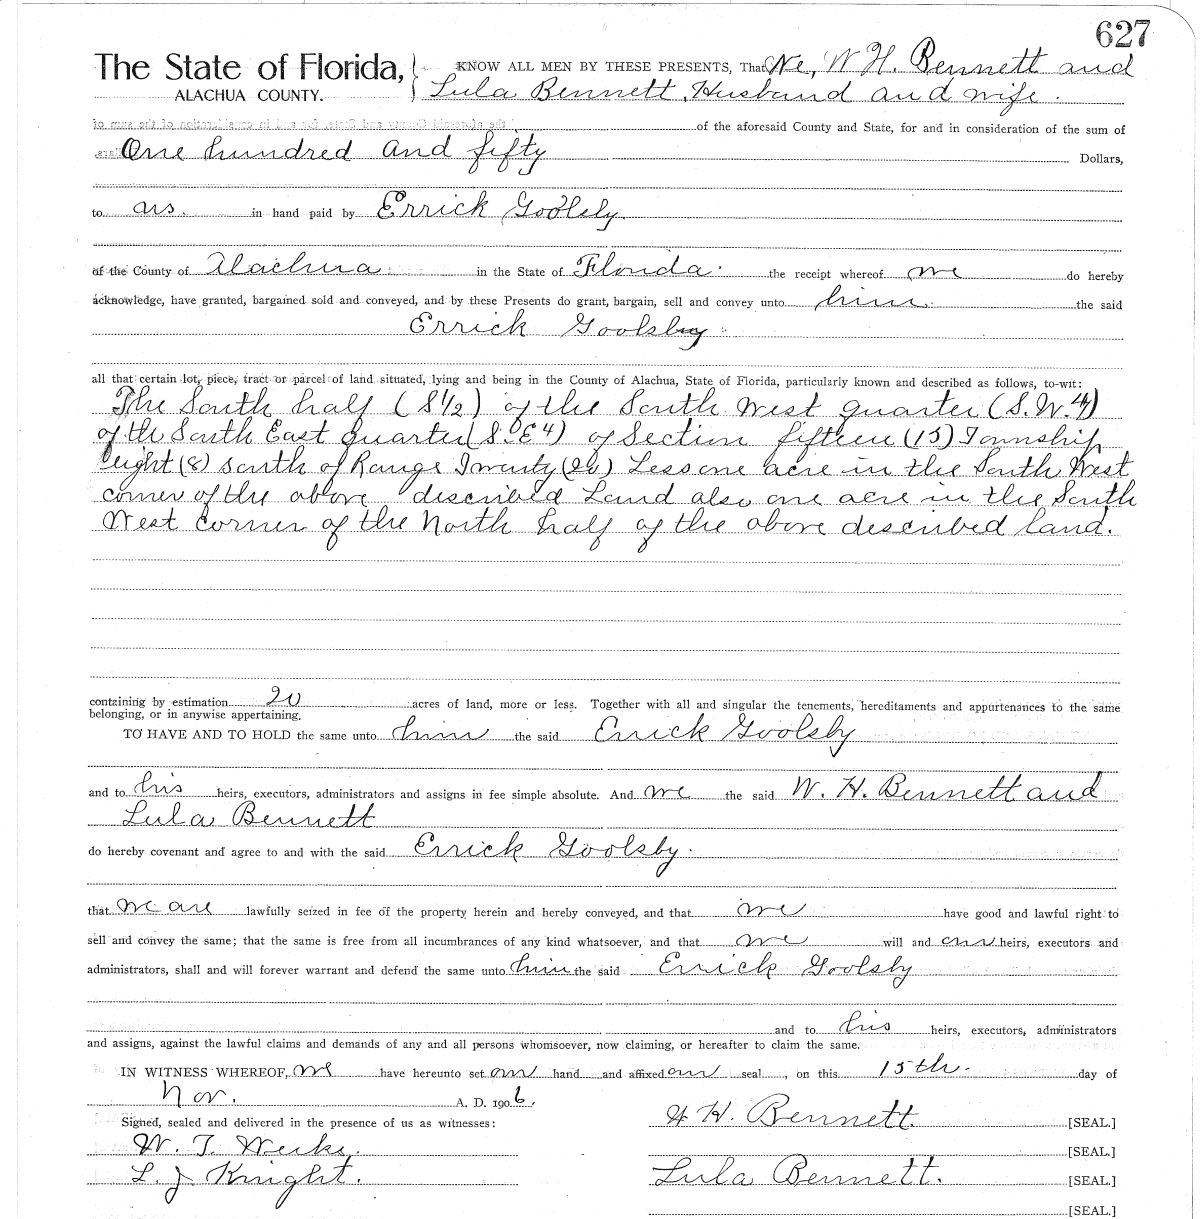 627
The State of Florida, KNOW ALL MEN BY THESE PRESENTS, That We, W H. Bennett and
ALACHUA COUNTY. Lula Bennett, Husband and wife.
of the aforesaid County and State, for and in consideration of the sum of
One hundred and fifty Dollars,
to us. in hand paid by Errick
of the County of Alachua in the State of Florida. the receipt whereof we do hereby
acknowledge, have granted, bargained sold and conveyed, and by these Presents do grant, bargain, sell and convey unto him. the said
Errick Goolsby
all that certain lot, piece, tract or parcel of land situated, lying and being in the County of Alachua, State of Florida, particularly known and described as follows, to-wit:
The South half (S 1/2) of the South West quarter (S.W.4)
of the South East quarter (S.E4) of Section fifteen (15) Township
eight (8) south of Range Twenty (20) Less one acre in the South West
corner of the above described Land also one acre in the South
West Corner of the North half of the above described land.
containing by estimation 20 acres of land, more or less. Together with all and singular the tenements, hereditaments and appurtenances to the same
belonging, or in anywise appertaining.
TO HAVE AND TO HOLD the same unto him the said Errick Goolsby
and to his heirs, executors, administrators and assigns in fee simple absolute. And we the said W. H. Bennett and
Lula Bennett
do hereby covenant and agree to and with the said Errick Goolsby.
that we are lawfully seized in fee of the property herein and hereby conveyed, and that we have good and lawful right to
sell and convey the same; that the same is free from all incumbrances of any kind whatsoever, and that we will and our heirs, executors and
administrators, shall and will forever warrant and defend the same unto him the said Errick Goolsby
and to his heirs, executors, administrators
and assigns, against the lawful claims and demands of any and all persons whomsoever, now claiming, or hereafter to claim the same.
IN WITNESS WHEREOF, we have hereunto set our hand and affixed our seal, on this 15th. day of
Nov. A. D. 1906.
Signed, sealed and delivered in the presence of us as witnesses: H. Bennett. [SEAL.]
W. T. Weeks. [SEAL.]
L. J. Knight. Lula Bennett. [SEAL.]
[SEAL.]